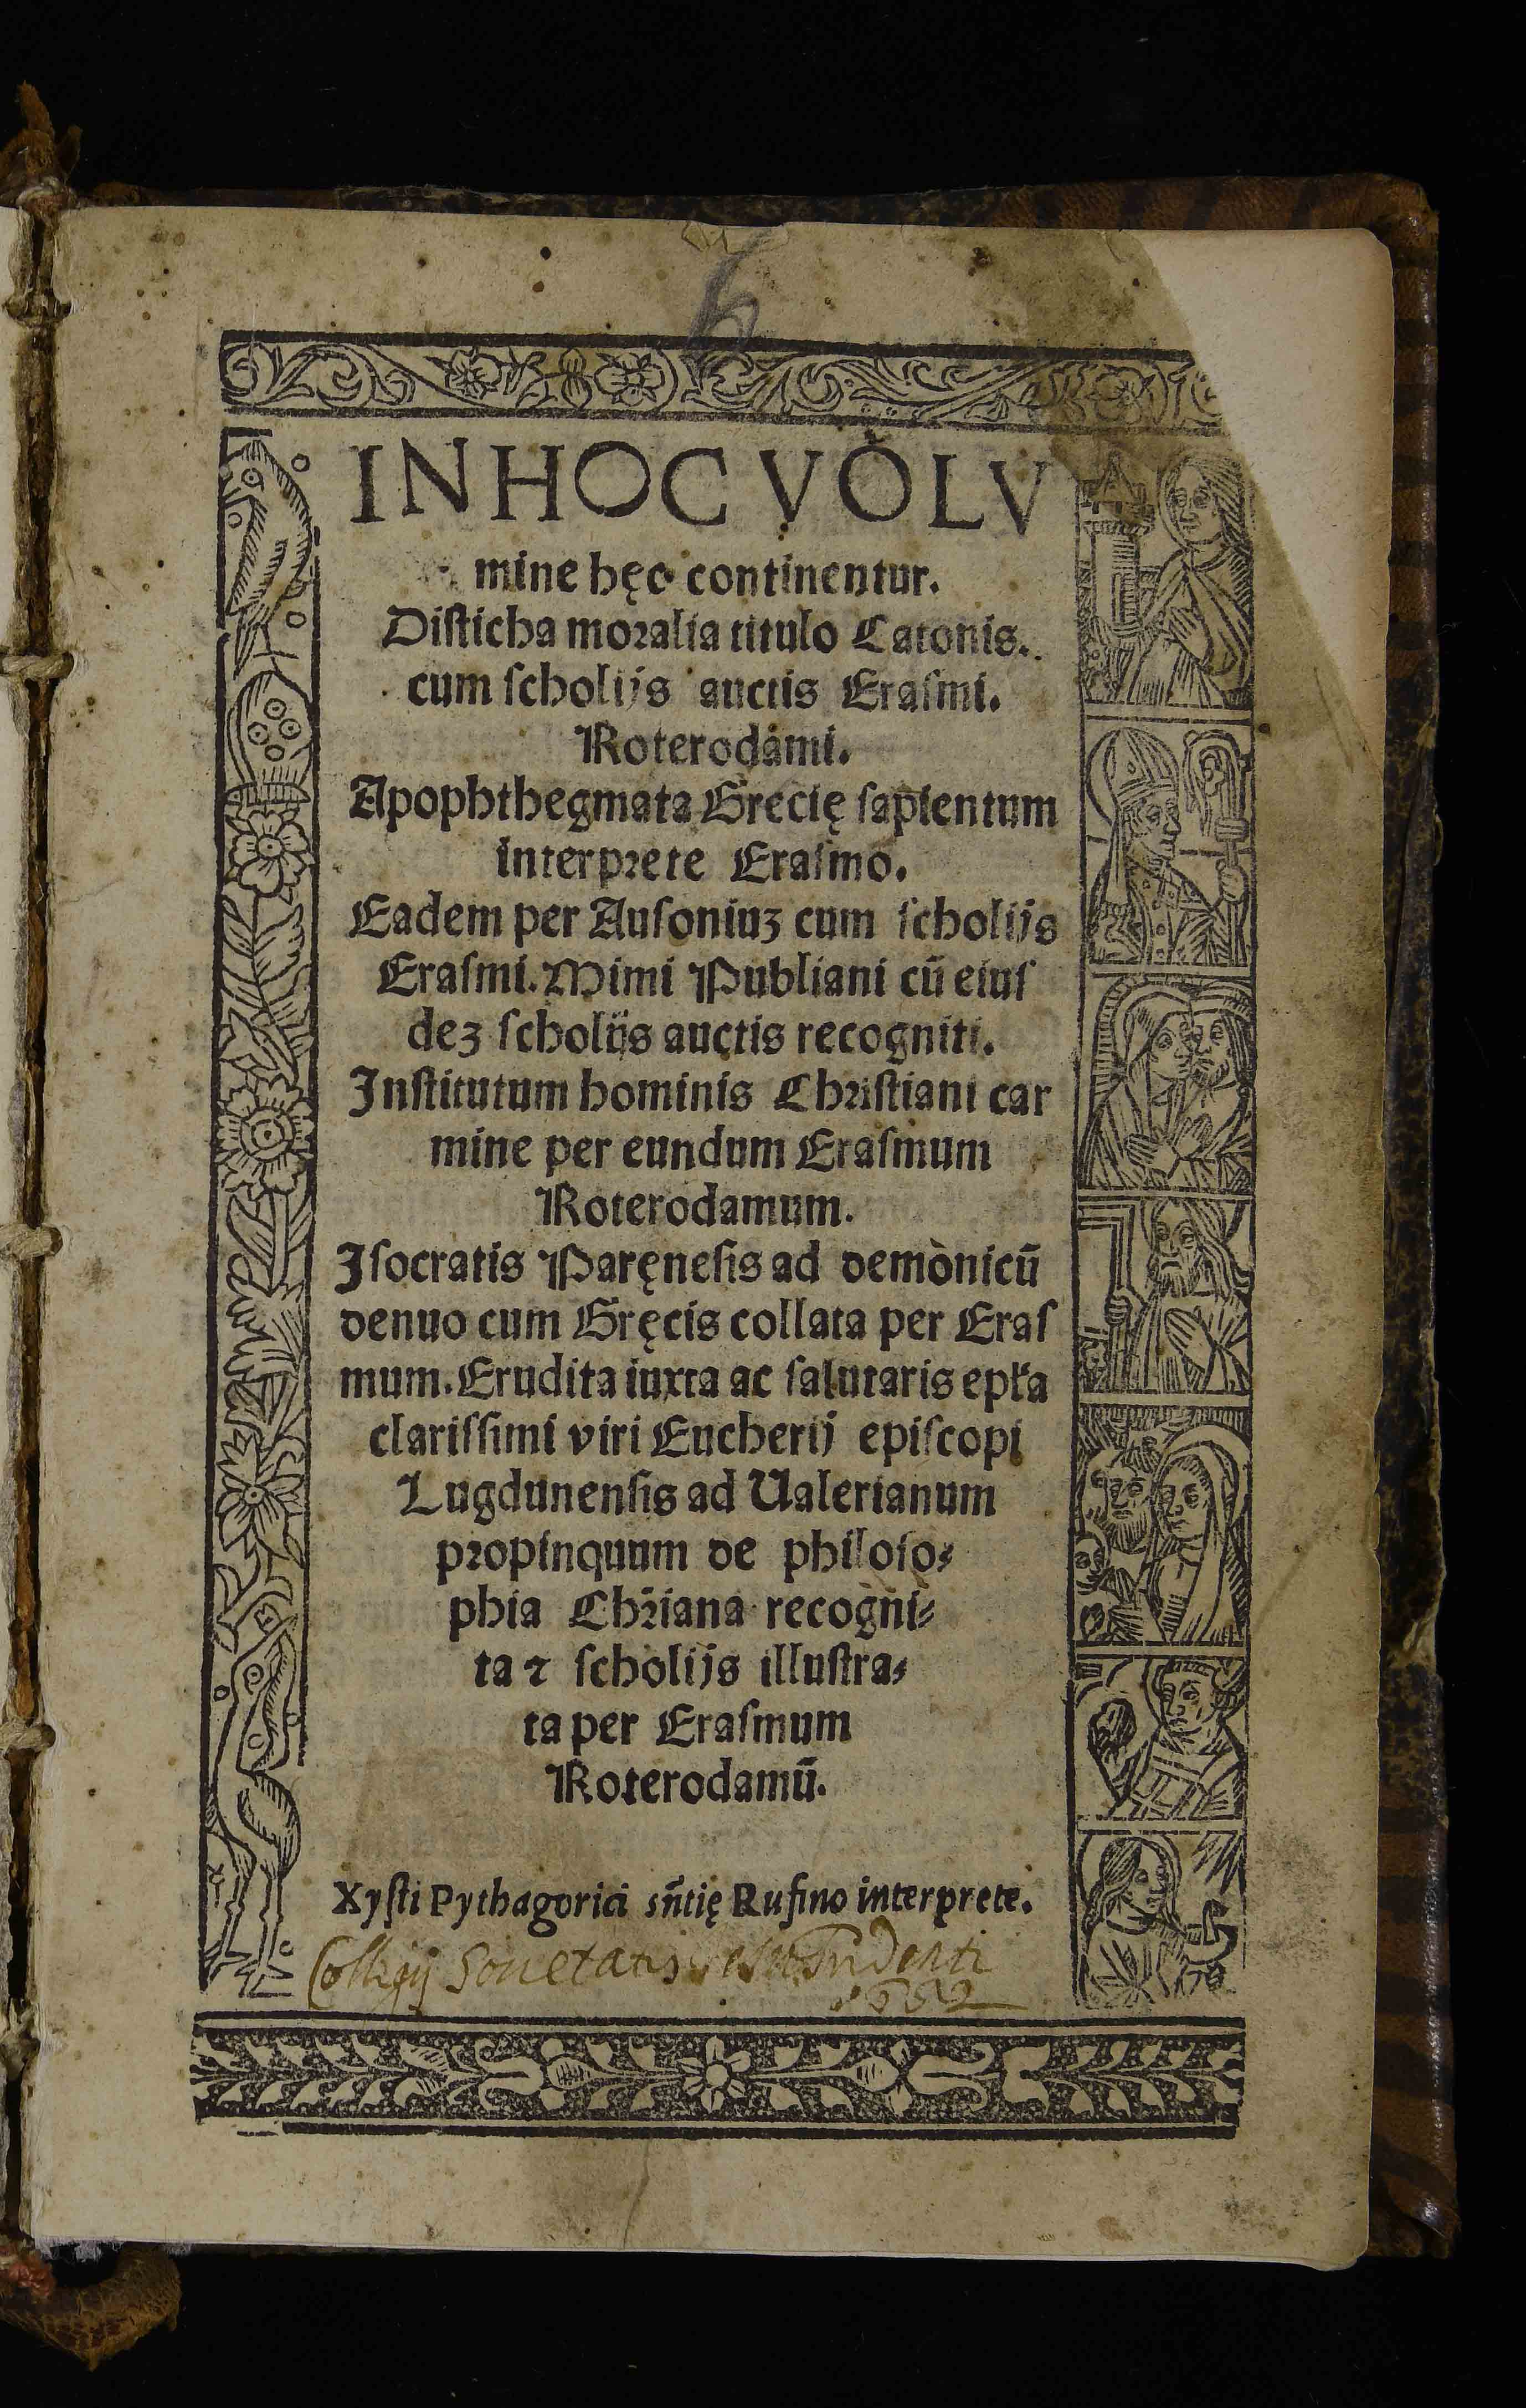 IN HOC VOLV
mine hęc continentur.
Diſticha moralia titulo Catonis.
cum ſcholijs auctis Eraſmi.
Roterodami.
Apophthegmata Grecię ſapientum
interprete Eraſmo.
Eadem per Auſoniuꝫ cum ſcholijs
Eraſmi. Mimi Publiani cū eiuſ
deꝫ ſcholijs auctis recogniti.
Inſtitutum hominis Chriſtiani car
mine per eundum Eraſmum
Roterodamum.
Iſocratis Paręneſis ad demonicū
denuo cum Gręcis collata per Eraſ
mum. Erudita iuxta ac ſalutaris epłа
clariſſimi viri Eucherij epiſcopi
Lugdunenſis ad Ualerianum
propinquum de philoſo⸗
phia Chr̄iana recogni⸗
ta ⁊ ſcholijs illuſtra⸗
ta per Eraſmum
Roterodamū.
Xyſti Pythagorici sn̄tię Rufino interprete.
Collegij Societatis Jesu Tridenti